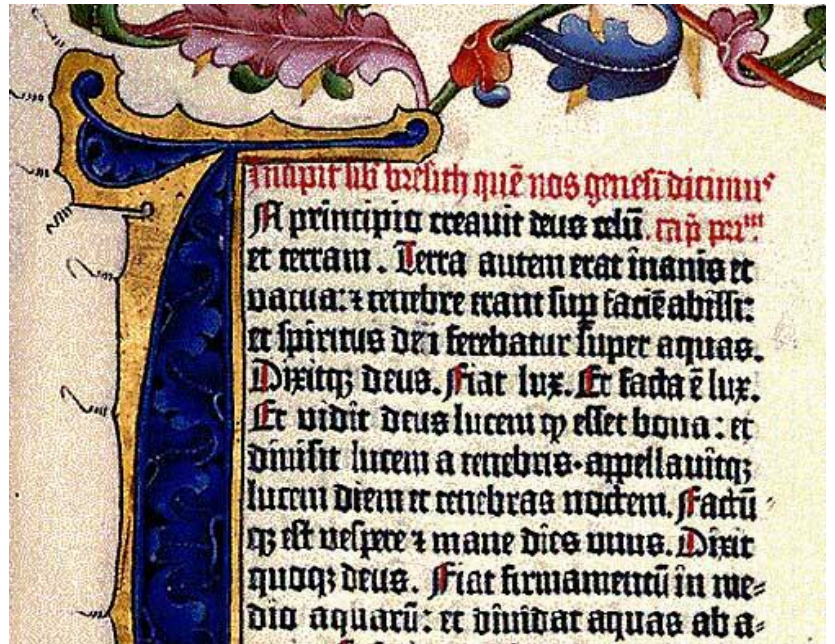 Incipit lib̄ bresith quē nos genesī dicimus
IN principio creauit deus celū. cap̄ pri^m.
et terram. Terra autem erat īnanis et
vacua: ⁊ tenebre erant sup̄ faciē abissi:
et spiritus dn̄i ferebatur super aquas.
Dixitq; deus. Fiat lux. Et facta ē lux.
Et vidit deus lucem ꝙ esset bona: et
diuisit lucem a tenebris·appellauitq;
lucem diem et tenebras noctem. Factū
q; est vespere ⁊ mane dies unus. Dixit
quoq; deus. Fiat firmamentū in me⸗
dio aquarū: et diuidat aquas ab a⸗